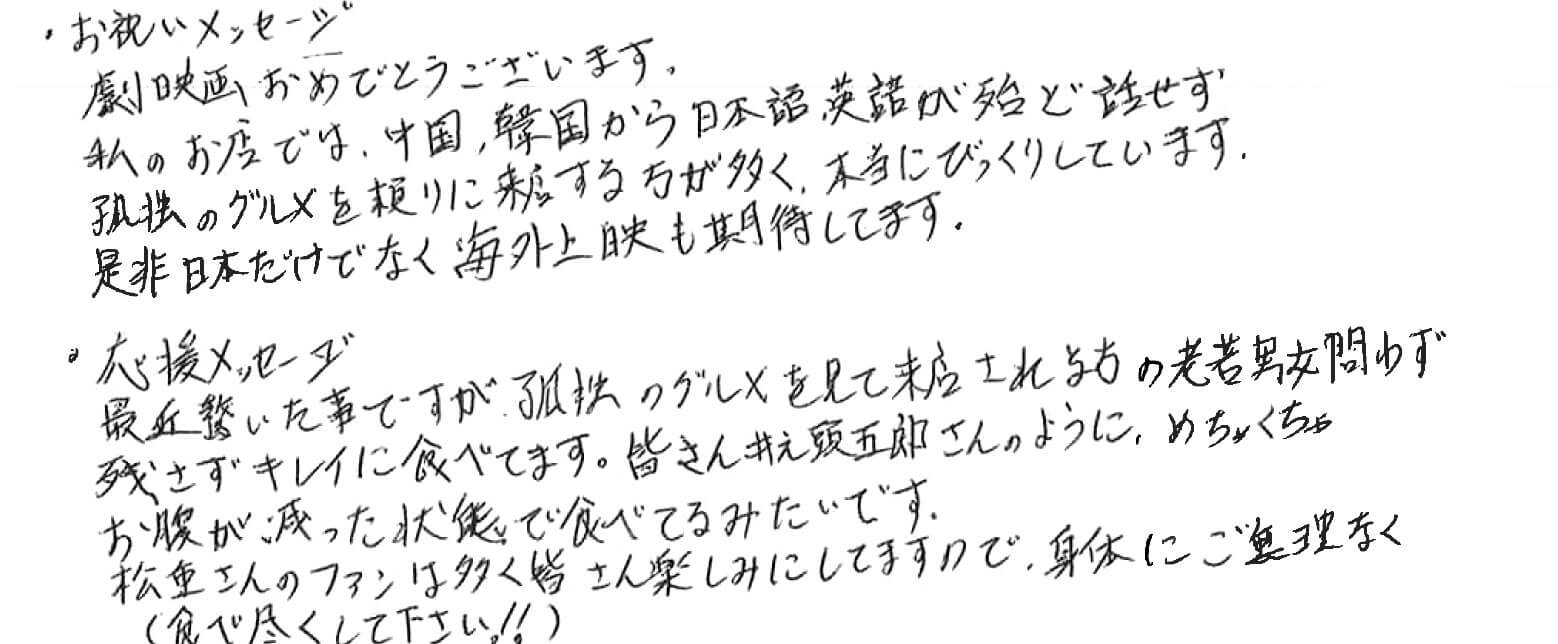 ・お祝いメッセージ
劇映画おめでとうございます。
私のお店では、中国、韓国から日本語、英語が殆ど話せず
孤独のグルメを頼りに来店する方が多く、本当にびっくりしています。
是非日本だけでなく海外上映も期待してます。
・応援メッセージ
最近驚いた事ですが、孤独のグルメを見て来店される方の老若男女問わず
残さずキレイに食べてます。皆さん井之頭五郎さんのように、めちゃくちゃ
お腹が減った状態で食べてるみたいです。
松重さんのファンは多く皆さん楽しみにしてますので、身体にご無理なく
(食べ尽くして下さい!!)